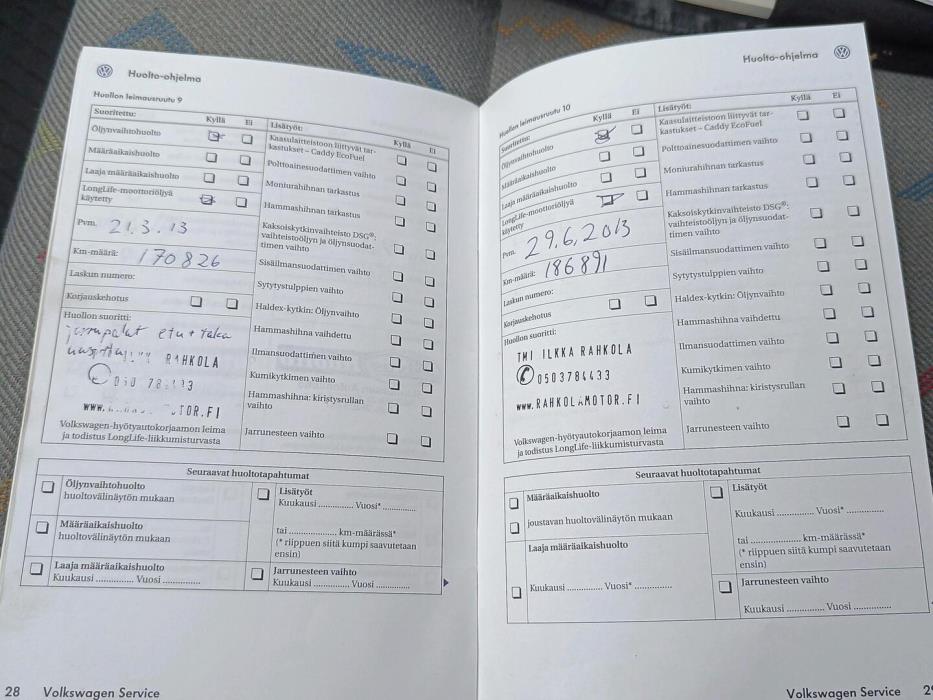 Huolto-ohjelma
Huollon leimausruutu 9
Suoritettu: Kyllä Ei
Öljynvaihtohuolto
Määräaikaishuolto
Laaja määräaikaishuolto
LongLife-moottoriöljyä
käytetty
Pvm. 21.3.13
Km-määrä: 170826
Laskun numero:
Korjauskehotus
Huollon suoritti:
jarrupalat etu + taka
RAHKOLA
www. OTOR.FI
Volkswagen-hyötyautokorjaamon leima
ja todistus LongLife-liikkumisturvasta
Lisätyöt: Kyllä Ei
Kaasulaitteistoon liittyvät tar-
kastukset – Caddy EcoFuel
Polttoainesuodattimen vaihto
Moniurahihnan tarkastus
Hammashihnan tarkastus
Kaksoiskytkinvaihteisto DSG®:
vaihteistoöljyn ja öljynsuodat-
timen vaihto
Sisäilmansuodattimen vaihto
Sytytystulppien vaihto
Haldex-kytkin: Öljynvaihto
Hammashihna vaihdettu
Ilmansuodattimen vaihto
Kumikytkimen vaihto
Hammashihna: kiristysrullan
vaihto
Jarrunesteen vaihto
Seuraavat huoltotapahtumat
Öljynvaihtohuolto
huoltovälinäytön mukaan
Määräaikaishuolto
huoltovälinäytön mukaan
Laaja määräaikaishuolto
Kuukausi .............. Vuosi ..............
Lisätyöt
Kuukausi .............. Vuosi* ..............
tai .................... km-määrässä*
(* riippuen siitä kumpi saavutetaan
ensin)
Jarrunesteen vaihto
Kuukausi .............. Vuosi ..............
28 Volkswagen Service
Huolto-ohjelma
Huollon leimausruutu 10
Suoritettu: Kyllä Ei
Öljynvaihtohuolto
Määräaikaishuolto
Laaja määräaikaishuolto
LongLife-moottoriöljyä
käytetty
Pvm. 29.6.2013
Km-määrä: 186891
Laskun numero:
Korjauskehotus
Huollon suoritti:
TMI ILKKA RAHKOLA
0503784433
www.RAHKOLAMOTOR.FI
Volkswagen-hyötyautokorjaamon leima
ja todistus LongLife-liikkumisturvasta
Lisätyöt: Kyllä Ei
Kaasulaitteistoon liittyvät tar-
kastukset – Caddy EcoFuel
Polttoainesuodattimen vaihto
Moniurahihnan tarkastus
Hammashihnan tarkastus
Kaksoiskytkinvaihteisto DSG®:
vaihteistoöljyn ja öljynsuodat-
timen vaihto
Sisäilmansuodattimen vaihto
Sytytystulppien vaihto
Haldex-kytkin: Öljynvaihto
Hammashihna vaihdettu
Ilmansuodattimen vaihto
Kumikytkimen vaihto
Hammashihna: kiristysrullan
vaihto
Jarrunesteen vaihto
Seuraavat huoltotapahtumat
Määräaikaishuolto
joustavan huoltovälinäytön mukaan
Laaja määräaikaishuolto
Kuukausi .............. Vuosi* ..............
Lisätyöt
Kuukausi .............. Vuosi* ..............
tai .................... km-määrässä*
(* riippuen siitä kumpi saavutetaan
ensin)
Jarrunesteen vaihto
Kuukausi .............. Vuosi ..............
Volkswagen Service